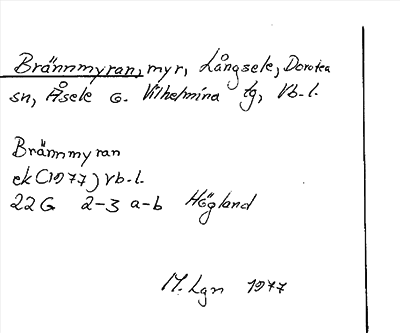 Brännmyran, myr, Långsele, Dorotea
sn, Åsele o. Vilhelmina tg, Vb-l.
Brännmyran
ek (1977) Vb-l.
22 G 2-3 a-b Högland
M. Lgn 1977